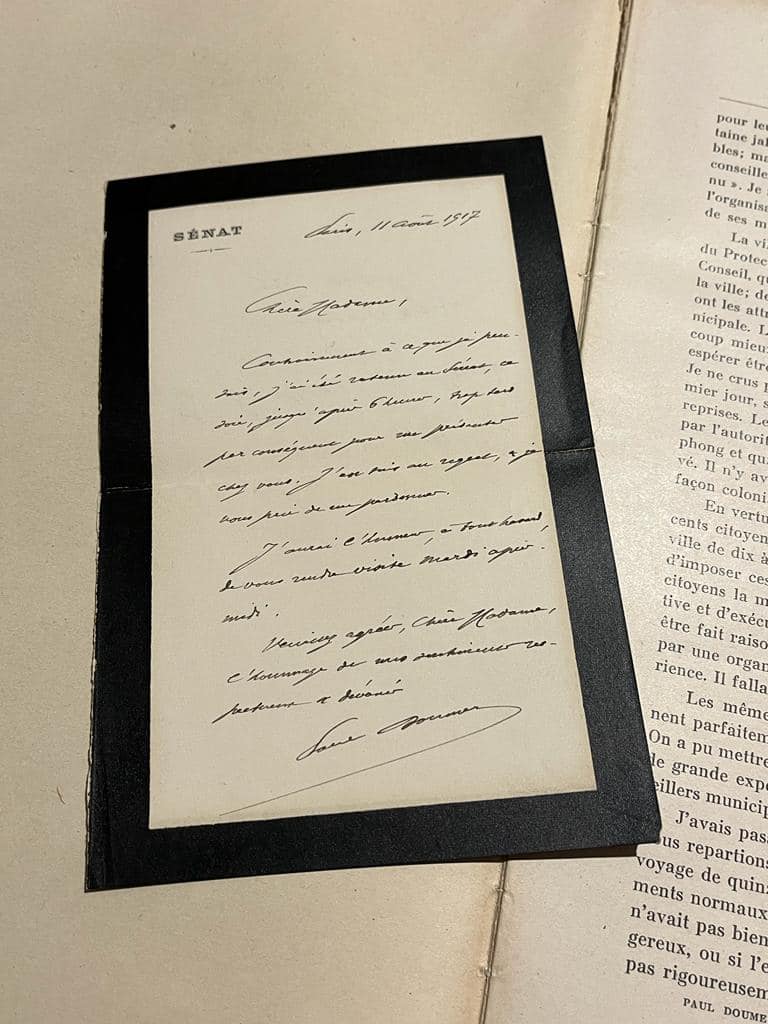 SÉNAT
Paris, 11 août 1917
Chère Madame,
Contrairement à ce que je pen-
sais, j'ai été retenu au Sénat, ce
soir, jusqu'après 6 heures, trop tard
par conséquent pour me présenter
chez vous. J'en suis au regret, & je
vous prie de me pardonner.
J'aurai l'honneur, à tout hasard
de vous rendre visite Mardi après-
midi.
Veuillez agréer, Chère Madame,
l'hommage de mes sentiments res-
pectueux & dévoués
Paul Doumer
pour leu
taine jal
bles; ma
conseille
nu ». Je
l'organisa
de ses m
La vi
du Protec
Conseil, qu
la ville; de
ont les attr
nicipale. L
coup mieux
espérer être
Je ne crus p
mier jour, s
reprises. Le
par l'autorit
phong et qui
vé. Il n'y av
façon coloni
En vertu
cents citoyen
ville de dix à
d'imposer ces
citoyens la m
tive et d'exécu
être fait raiso
par une organ
rience. Il falla
Les même
nent parfaitem
On a pu mettre
de grande expé
eillers municip
J'avais pas
ous repartions
voyage de quin
ments normaux
n'avait pas bien
gereux, ou si l'e
pas rigoureusem
PAUL DOUME